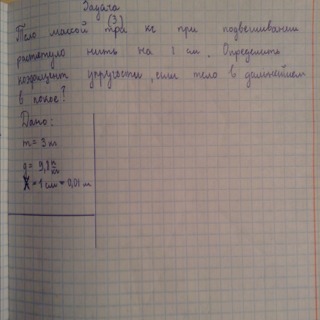 Задача
(3)
Тело массой три кг при подвешивании
растянуло нить на 1 см. Определить
коэфициент упругости, если тело в дальнейшем
в покое?
Дано:
m = 3 кг
g = 9,8 Н/кг
X = 1 см = 0,01 м